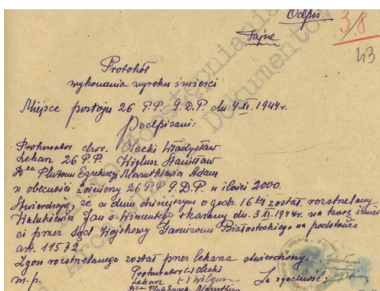 Odpis
Tajne
3/8
43
Protokół
wykonania wyroku śmierci
Miejsce postoju 26 P.P. 9.D.P. dn. 4.XI.1944r.
Podpisani:
Prokurator chor. Olecki Władysław
Lekarz 26 P.P. Stanisław
D-ca Plutonu Adam
w obecności żołnierzy 26 PP 9.D.P. w ilości 2000.
Stwierdzają, że w dniu dzisiejszym o godz. 16 został rozstrzelany
Jan s. Wincentego skazany dn. 3.XI.1944r. na karę śmier
ci przez Sąd Wojskowy Garnizonu Białostockiego na podstawie
art.
Zgon rozstrzelanego został przez lekarza stwierdzony.
m.p. Prokurator (-) Olecki
Lekarz (-) Za zgodność: